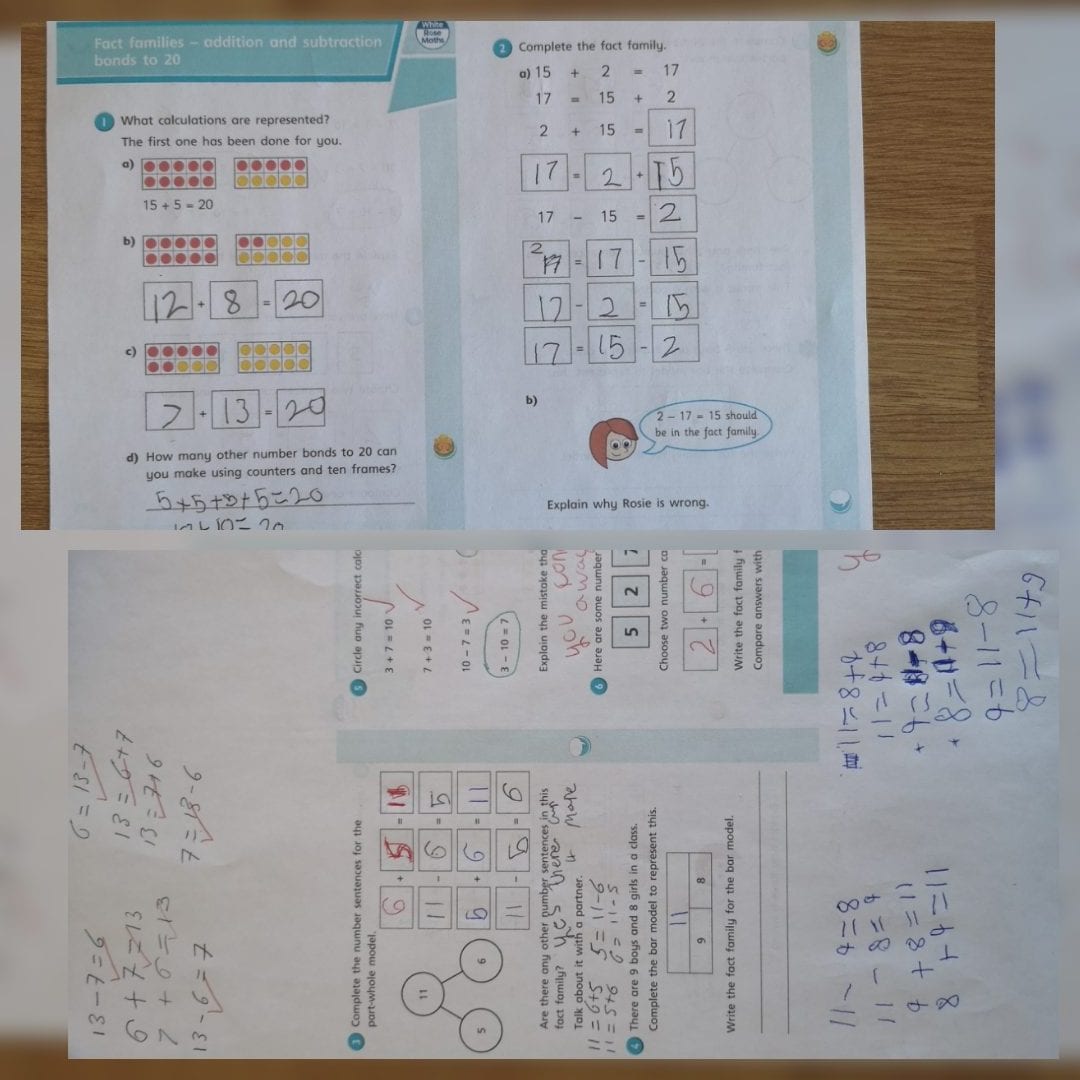 Fact families – addition and subtraction
bonds to 20
White
Rose
Maths
1 What calculations are represented?
The first one has been done for you.
a)
15 + 5 = 20
b)
12 + 8 = 20
c)
7 + 13 = 20
d) How many other number bonds to 20 can
you make using counters and ten frames?
5+5+5+5=20
10+10=20
2 Complete the fact family.
a) 15 + 2 = 17
17 = 15 + 2
2 + 15 = 17
17 = 2 + 15
17 – 15 = 2
2 = 17 - 15
17 - 2 = 15
17 = 15 - 2
b)
2 – 17 = 15 should
be in the fact family.
Explain why Rosie is wrong.
13-7=6
6+7=13
7+6=13
13-6=7
6=13-7
13=6+7
13=7+6
7=13-6
3 Complete the number sentences for the
part-whole model.
11
5
6
6 + 5 = 11
11 - 6 = 5
5 + 6 = 11
11 - 5 = 6
Are there any other number sentences in this
fact family? yes there are
Talk about it with a partner. 4 more
11=6+5 5=11-6
11=5+6 6=11-5
4 There are 9 boys and 8 girls in a class.
Complete the bar model to represent this.
11
9 8
Write the fact family for the bar model.
11-9=8
11-8=9
9+8=11
8+9=11
5 Circle any incorrect calc
3 + 7 = 10
7 + 3 = 10
10 – 7 = 3
3 – 10 = 7
Explain the mistake tha
you
away
6 Here are some number
5 2
Choose two number ca
2 + 6 =
Write the fact family f
Compare answers with
11=8+9
11=9+8
9=11-8
8=11+9